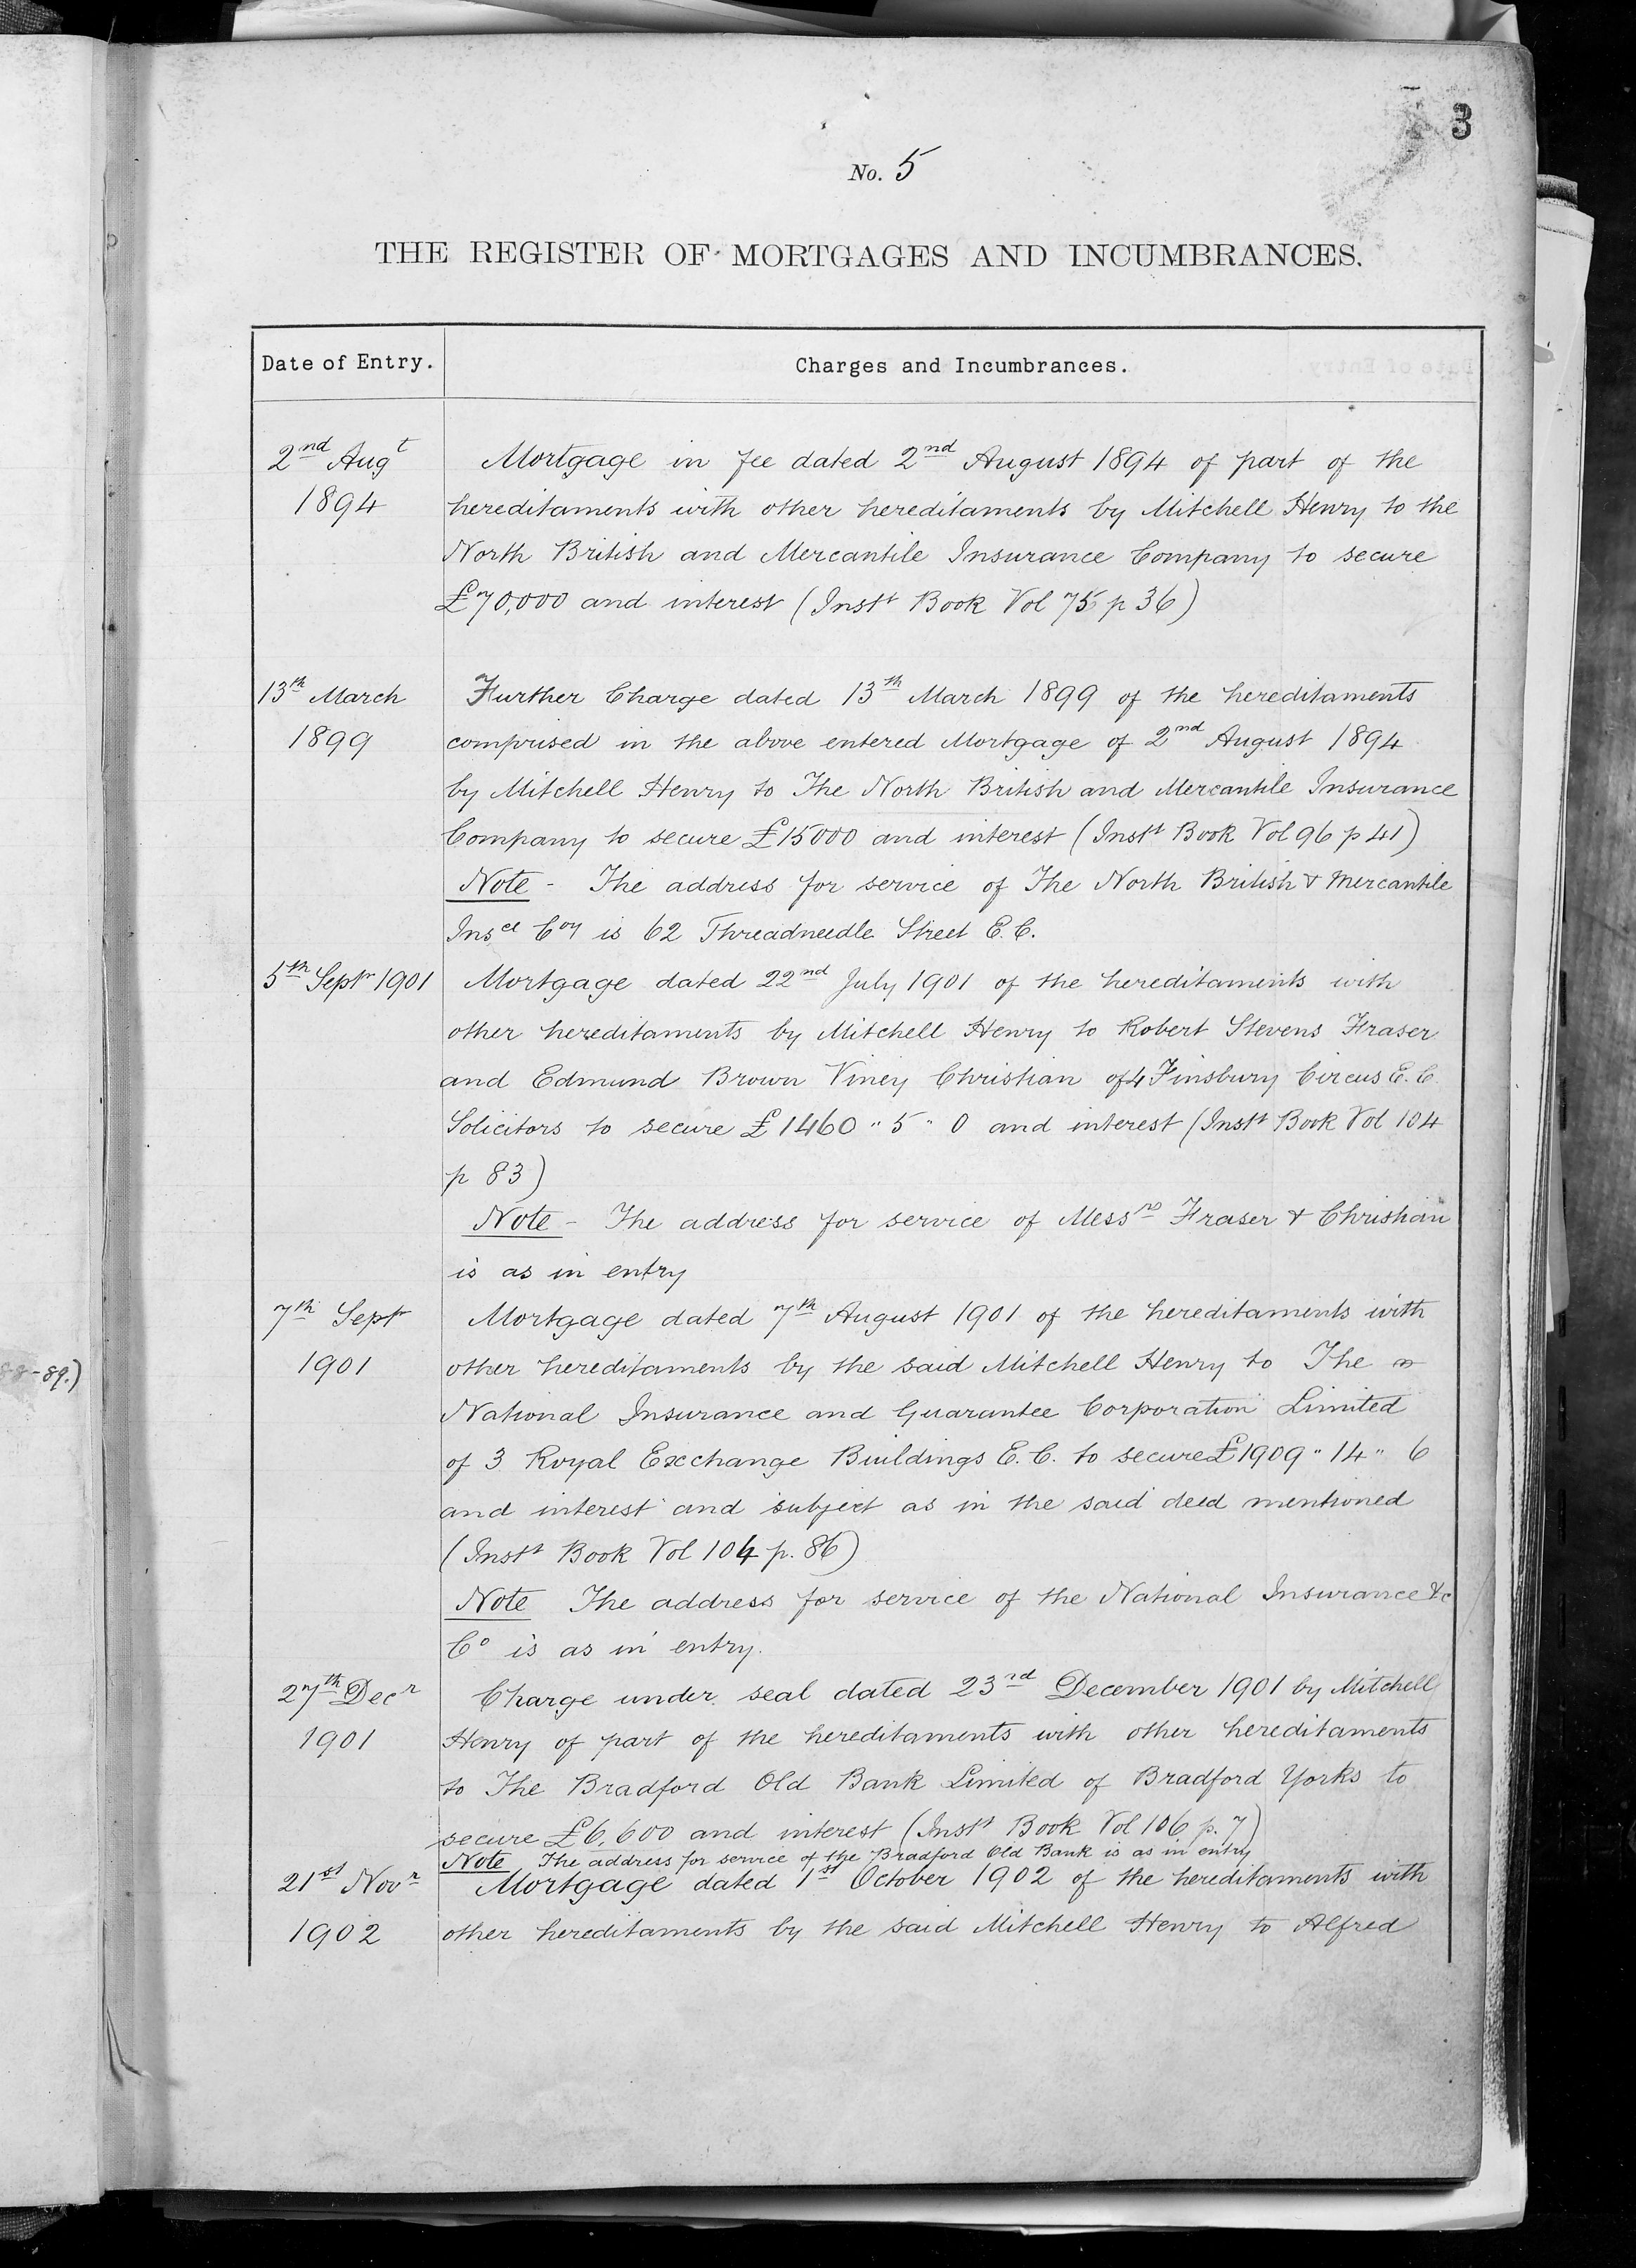 3
No. 5
THE REGISTER OF MORTGAGES AND INCUMBRANCES.
Date of Entry.
Charges and Incumbrances.
2nd Augt
1894
Mortgage in fee dated 2nd August 1894 of part of the
hereditaments with other hereditaments by Mitchell Henry to the
North British and Mercantile Insurance Company to secure
£70,000 and interest (Instt Book Vol 75 p 36)
13th March
1899
Further Charge dated 13th March 1899 of the hereditaments
comprised in the above entered Mortgage of 2nd August 1894
by Mitchell Henry to The North British and Mercantile Insurance
Company to secure £15000 and interest (Instt Book Vol 96 p 41)
Note - The address for service of The North British & Mercantile
Insce Coy is 62 Threadneedle Street E.C.
5th Septr 1901
Mortgage dated 22nd July 1901 of the hereditaments with
other hereditaments by Mitchell Henry to Robert Stevens Fraser
and Edmund Brown Viney Christian of 4 Finsbury Circus E.C.
Solicitors to secure £1460 " 5 " 0 and interest (Instt Book Vol 104
p 83)
Note - The address for service of Messrs Fraser & Christian
is as in entry
7th Septr
1901
Mortgage dated 7th August 1901 of the hereditaments with
other hereditaments by the said Mitchell Henry to The
National Insurance and Guarantee Corporation Limited
of 3 Royal Exchange Buildings E.C. to secure £1909 " 14 " 6
and interest and subject as in the said deed mentioned
(Instt Book Vol 104 p. 86)
Note The address for service of the National Insurance &c
Co is as in entry.
27th Decr
1901
Charge under seal dated 23rd December 1901 by Mitchell
Henry of part of the hereditaments with other hereditaments
to The Bradford Old Bank Limited of Bradford Yorks to
secure £6,600 and interest (Instt Book Vol 106 p. 7)
Note The address for service of the Bradford Old Bank is as in entry
21st Novr
1902
Mortgage dated 1st October 1902 of the hereditaments with
other hereditaments by the said Mitchell Henry to Alfred
-89.)